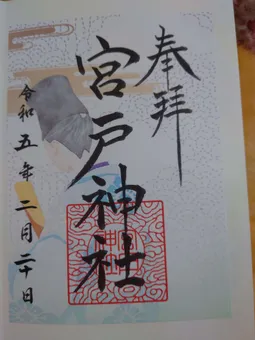 奉拝
宮戸神社
令和五年二月二十日